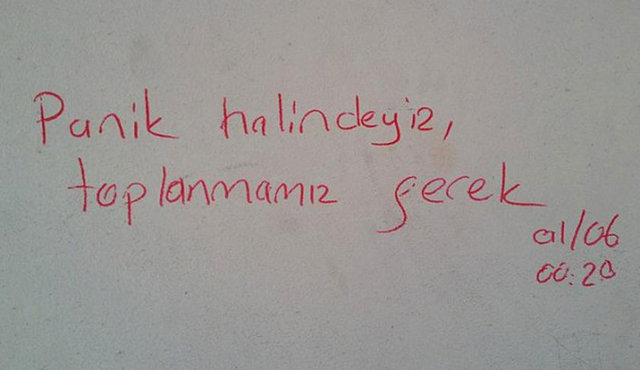 Panik halindeyiz,
toplanmamız gerek
01/06
00:20